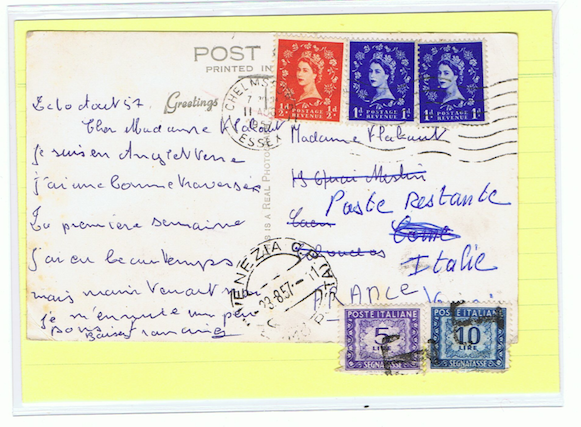 POST
PRINTED IN
Greetings
CHELMS
7
11 A
1957
ESSEX
½d ½d
POSTAGE REVENUE
1d 1d
POSTAGE REVENUE
1d 1d
POSTAGE REVENUE
Le 10 août 57
Cher Madame
je suis en Angleterre
j'ai une bonne traversée
La première semaine
j'ai eu beau temps
mais maintenant
je m'ennuie un peu
Bons Baisers
IS A REAL PHOTO
Madame
19 Quai
Caen
Calvados
FRANCE
Poste Restante
Come
Italie
VENEZIA
23.8.57
POSTE ITALIANE
5
LIRE
SEGNATASSE
POSTE ITALIANE
10
LIRE
SEGNATASSE